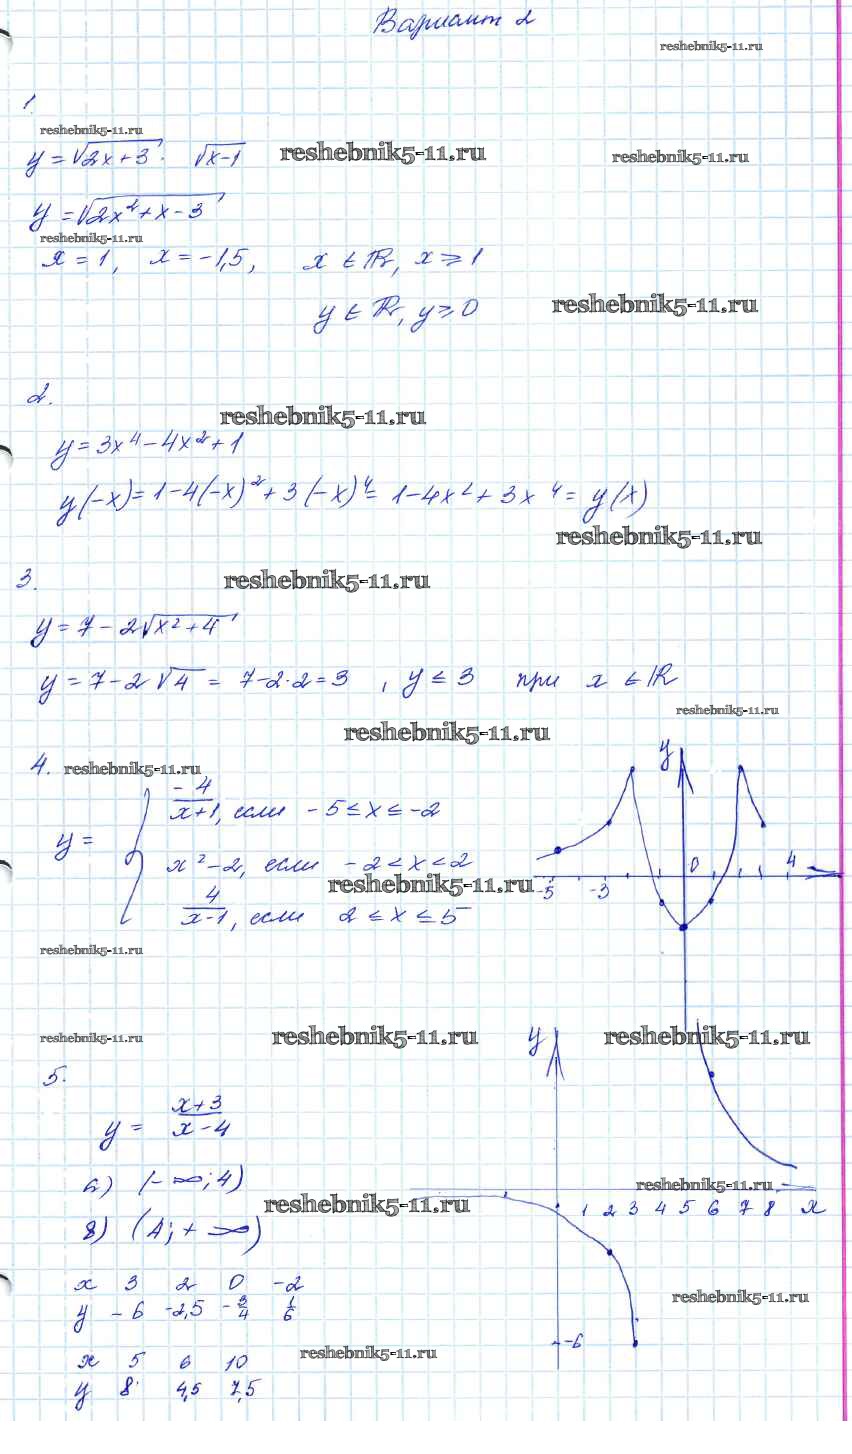 Вариант 2
reshebnik5-11.ru
1.
reshebnik5-11.ru
y = √(2x+3) · √(x-1)
reshebnik5-11.ru
reshebnik5-11.ru
y = √(2x²+x-3)
reshebnik5-11.ru
x = 1, x = -1,5, x ∈ R, x ≥ 1
y ∈ R, y ≥ 0
reshebnik5-11.ru
2.
reshebnik5-11.ru
y = 3x⁴ - 4x² + 1
y(-x) = 1-4(-x)² + 3(-x)⁴ = 1-4x² + 3x⁴ = y(x)
reshebnik5-11.ru
3.
reshebnik5-11.ru
y = 7 - 2√(x²+4)
y = 7-2√4 = 7-2·2 = 3 , y ≤ 3 при x ∈ R
reshebnik5-11.ru
reshebnik5-11.ru
4.
reshebnik5-11.ru
y =
-4/(x+1), если -5 ≤ x ≤ -2
x² - 2, если -2 < x < 2
4/(x-1), если 2 ≤ x ≤ 5
reshebnik5-11.ru
reshebnik5-11.ru
y
-5 -3 0 4
reshebnik5-11.ru
reshebnik5-11.ru
reshebnik5-11.ru
5.
y = (x+3)/(x-4)
(-∞; 4)
в) (4; +∞)
reshebnik5-11.ru
x 3 2 0 -2
y -6 -2,5 -3/4 1/6
x 5 6 10
y 8 4,5 7,5
reshebnik5-11.ru
y
reshebnik5-11.ru
1 2 3 4 5 6 7 8 x
reshebnik5-11.ru
-6